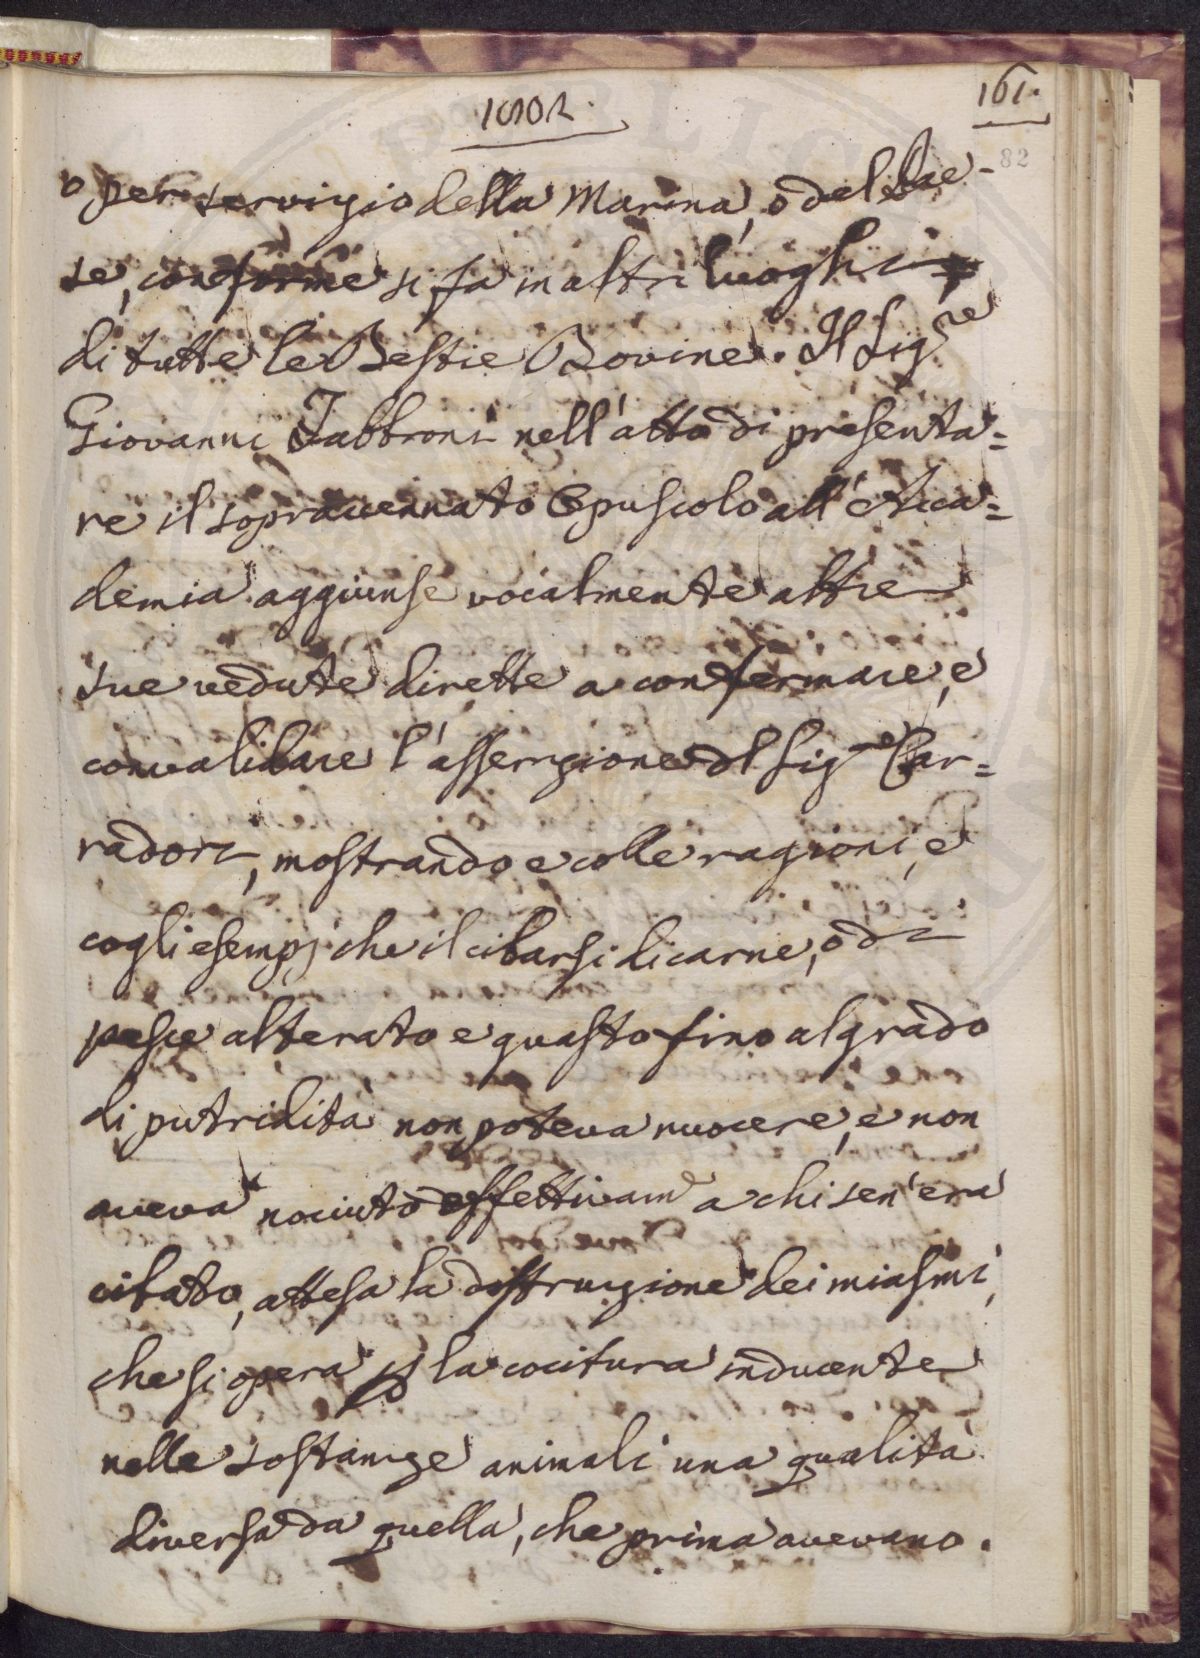 1802.
161.
82
o per servigio della Marina, o del Pae-
se, conforme si fa in altri luoghi
di tutte le Bestie Bovine. Il Sig.re
Giovanni Fabbroni nell'atto di presenta=
re il sopraccennato Opuscolo all'Acca=
demia aggiunse vocalmente altre
sue vedute dirette a confermare, e
convalidare l'asserzione del Sig.re Car=
radori, mostrando e colle ragioni, e
cogli esempj che il cibarsi di carne, o di
pesce alterato e guasto fino al grado
di putridità non poteva nuocere, e non
aveva nociuto effettivam.e a chi sen'era
cibato, attesa la distruzione dei miasmi,
che si opera p la cocitura inducente
nelle sostanze animali una qualità
diversa da quella, che prima avevano.